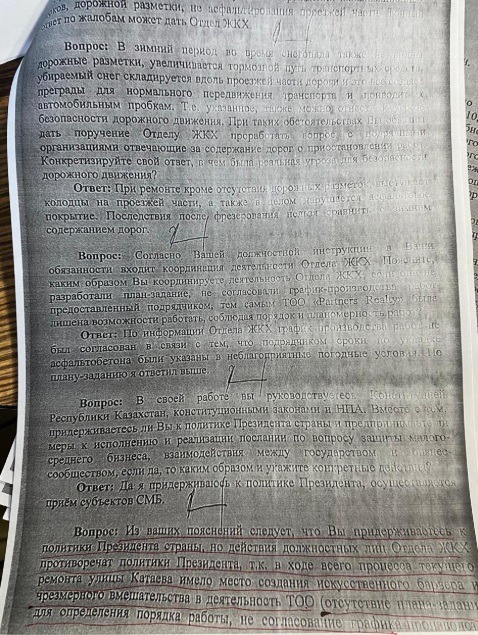 дорожной разметки, не асфальтирования проезжей части
ответ по жалобам может дать Отдел ЖКХ.
Вопрос: В зимний период во время снегопада также
дорожные разметки, увеличивается тормозной путь транспортных средств,
убираемый снег складируется вдоль проезжей части дороги и
преграды для нормального передвижения транспорта и приводит к
автомобильным пробкам. Т.е. указанное, также можно
безопасности дорожного движения. При таких обстоятельствах Вы
дать поручение Отделу ЖКХ проработать вопрос с подрядными
организациями отвечающие за содержание дорог о приостановлении
Конкретизируйте свой ответ, в чем была реальная угроза для безопасности
дорожного движения?
Ответ: При ремонте кроме отсутствия дорожных разметок
колодцы на проезжей части, а также в целом нарушается
покрытие. Последствия после фрезерования нельзя сравнить с зимним
содержанием дорог.
Вопрос: Согласно Вашей должностной инструкции в Ваши
обязанности входит координация деятельности Отдела ЖКХ. Поясните,
каким образом Вы координируете деятельность Отдела ЖКХ,
разработали план-задание, не согласовали график-производства
предоставленный подрядчиком, тем самым ТОО «Partners Realty» была
лишена возможности работать, соблюдая порядок и планомерность
Ответ: По информации Отдела ЖКХ график производства работ не
был согласован в связи с тем, что подрядчиком сроки по укладке
асфальтобетона были указаны в неблагоприятные погодные условия. По
плану-заданию я ответил выше.
Вопрос: В своей работе вы руководствуетесь Конституцией
Республики Казахстан, конституционными законами и НПА. Вместе с тем,
придерживаетесь ли Вы к политике Президента страны и предпринимаете ли
меры к исполнению и реализации послании по вопросу защиты малого-
среднего бизнеса, взаимодействия между государством и бизнес-
сообществом, если да, то каким образом и укажите конкретные действия?
Ответ: Да я придерживаюсь к политике Президента, осуществляется
приём субъектов СМБ.
Вопрос: Из ваших пояснений следует, что Вы придерживаетесь к
политики Президента страны, но действия должностных лиц Отдела ЖКХ
противоречат политики Президента, т.к. в ходе всего процесса текущего
ремонта улицы Катаева имело место создания искусственного барьера и
чрезмерного вмешательства в деятельность ТОО (отсутствие плана-задания
для определения порядка работы, не согласование графика